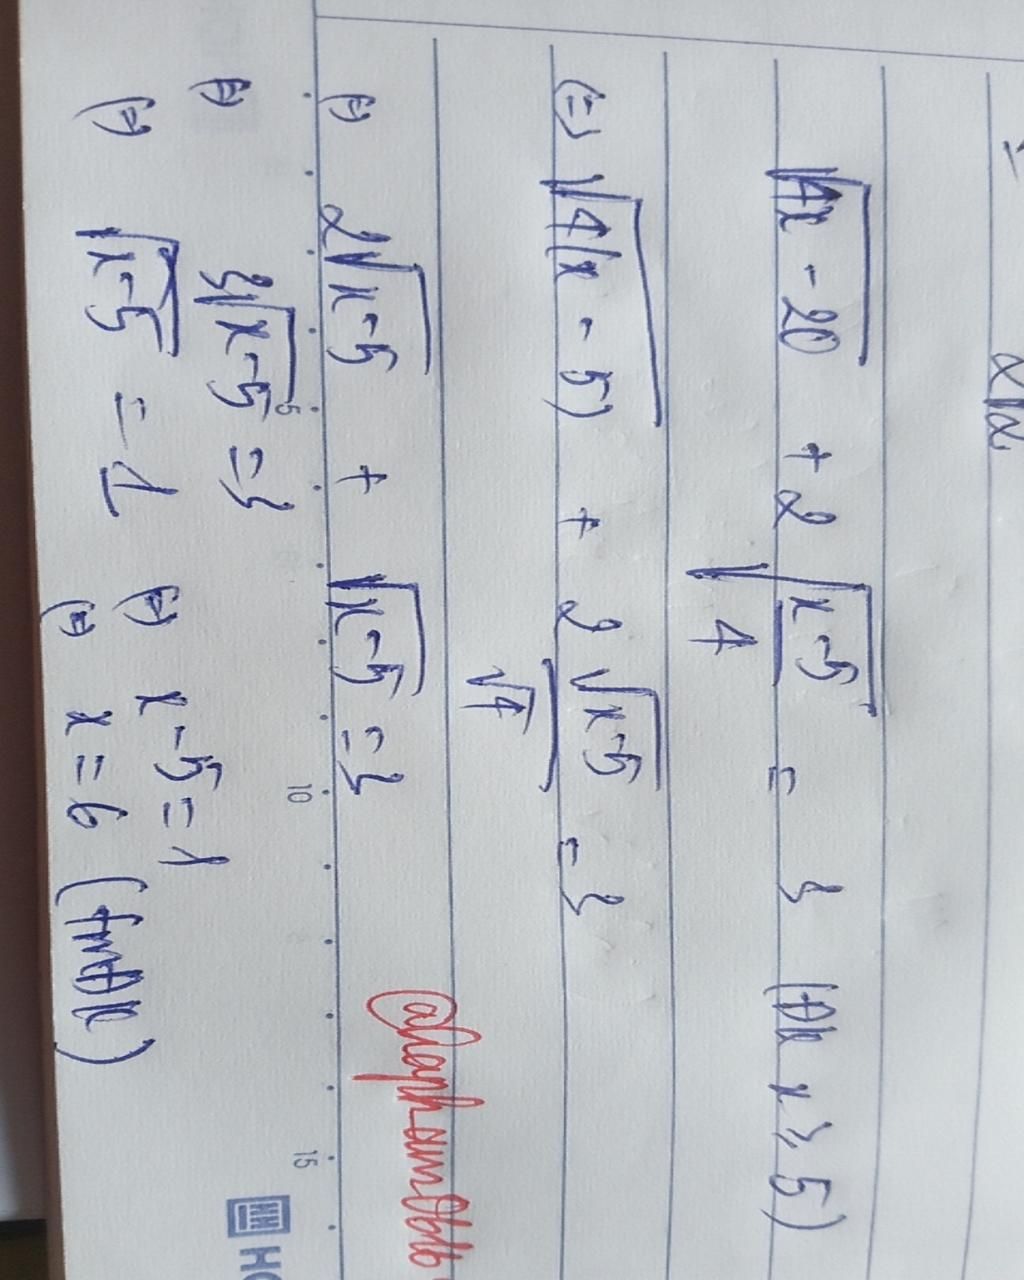 √(4x - 20) + 2√((x-5)/4) = 3 (ĐK x ≥ 5)
(=) √(4(x - 5)) + 2 √(x-5)/√4 = 3
(=) 2√(x-5) + √(x-5) = 3
(=) 3√(x-5) = 3
(=) √(x-5) = 1
(=) x-5 = 1
(=) x = 6 (tmĐK)
5 10 15